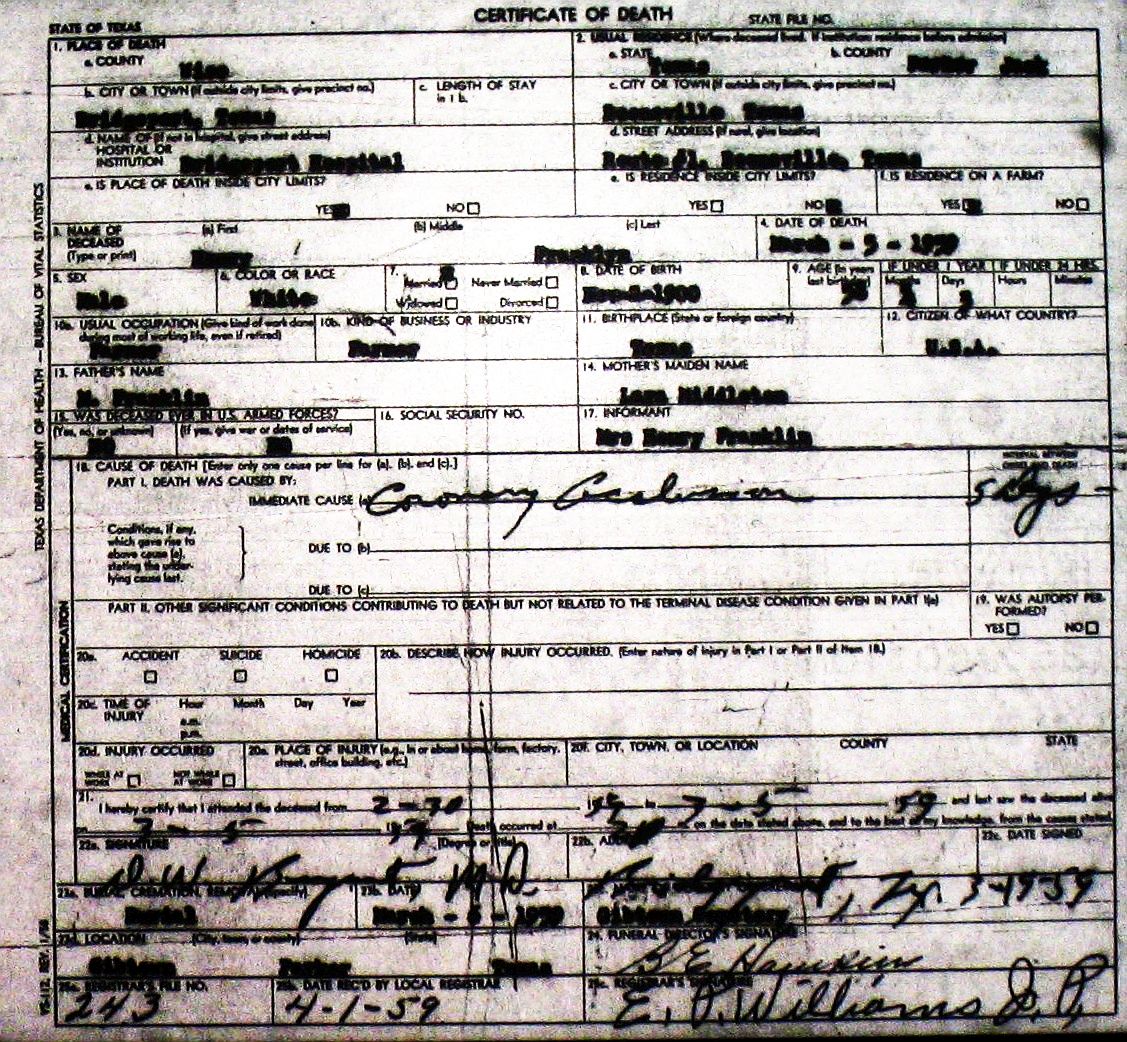 CERTIFICATE OF DEATH
STATE OF TEXAS STATE FILE NO.
1. PLACE OF DEATH
a. COUNTY
Wise
2. USUAL RESIDENCE (Where deceased lived. If institution: residence before admission)
a. STATE
Texas
b. COUNTY
Parker Jack
b. CITY OR TOWN (If outside city limits, give precinct no.)
Bridgeport, Texas
c. LENGTH OF STAY
in 1 b.
c. CITY OR TOWN (If outside city limits, give precinct no.)
Texas
d. NAME OF (If not in hospital, give street address)
HOSPITAL OR
INSTITUTION Bridgeport Hospital
d. STREET ADDRESS (If rural, give location)
Route #1, Texas
e. IS PLACE OF DEATH INSIDE CITY LIMITS?
YES NO
e. IS RESIDENCE INSIDE CITY LIMITS?
YES NO
f. IS RESIDENCE ON A FARM?
YES NO
3. NAME OF
DECEASED
(Type or print)
(a) First
Henry
(b) Middle
(c) Last
Franklyn
4. DATE OF DEATH
March - 5 - 1959
5. SEX
Male
6. COLOR OR RACE
White
7.
Married Never Married
Widowed Divorced
8. DATE OF BIRTH
9. AGE (In years
last birthday)
IF UNDER 1 YEAR
Months Days
IF UNDER 24 HRS.
Hours Minutes
10a. USUAL OCCUPATION (Give kind of work done
during most of working life, even if retired)
Farmer
10b. KIND OF BUSINESS OR INDUSTRY
Farmer
11. BIRTHPLACE (State or foreign country)
Texas
12. CITIZEN OF WHAT COUNTRY?
U.S.A.
13. FATHER'S NAME
M. Franklin
14. MOTHER'S MAIDEN NAME
Middleton
15. WAS DECEASED EVER IN U.S. ARMED FORCES?
(Yes, no, or unknown) (If yes, give war or dates of service)
NO NO
16. SOCIAL SECURITY NO.
17. INFORMANT
Mrs Henry Franklin
18. CAUSE OF DEATH [Enter only one cause per line for (a), (b), and (c).]
PART I. DEATH WAS CAUSED BY:
IMMEDIATE CAUSE (a) Coronary Occlusion
INTERVAL BETWEEN
ONSET AND DEATH
5 Dys -
Conditions, if any,
which gave rise to
above cause (a),
stating the under-
lying cause last.
DUE TO (b)
DUE TO (c)
PART II. OTHER SIGNIFICANT CONDITIONS CONTRIBUTING TO DEATH BUT NOT RELATED TO THE TERMINAL DISEASE CONDITION GIVEN IN PART I(a)
19. WAS AUTOPSY PER-
FORMED?
YES NO
20a. ACCIDENT SUICIDE HOMICIDE
20b. DESCRIBE HOW INJURY OCCURRED. (Enter nature of injury in Part I or Part II of Item 18.)
20c. TIME OF
INJURY
Hour Month Day Year
a.m.
p.m.
20d. INJURY OCCURRED
WHILE AT
WORK
NOT WHILE
AT WORK
20e. PLACE OF INJURY (e.g., in or about home, farm, factory,
street, office building, etc.)
20f. CITY, TOWN, OR LOCATION COUNTY STATE
21.
I hereby certify that I attended the deceased from 59 to 59 and last saw the deceased alive
on death occurred at on the date stated above, and to the best of my knowledge, from the causes stated.
22a. SIGNATURE (Degree or title)
M.D.
22b. ADDRESS
Bridgeport, Tex.
22c. DATE SIGNED
3-19-59
23a. BURIAL, CREMATION, REMOVAL (Specify)
Burial
23b. DATE
March - 1959
Cemetery
23d. LOCATION (City, town, or county) (State)
Parker Texas
24. FUNERAL DIRECTOR'S SIGNATURE
25a. REGISTRAR'S FILE NO.
243
25b. DATE REC'D BY LOCAL REGISTRAR
4-1-59
25c. REGISTRAR'S SIGNATURE
E. P. Williams J. P.
TEXAS DEPARTMENT OF HEALTH — BUREAU OF VITAL STATISTICS
MEDICAL CERTIFICATION